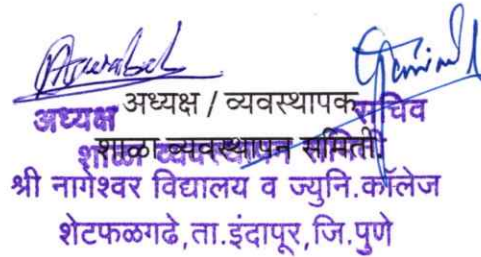 अध्यक्ष अध्यक्ष / व्यवस्थापक सचिव
शाळा व्यवस्थापन समिती
शाळा व्यवस्थापन समिती
श्री नागेश्वर विद्यालय व ज्युनि.कॉलेज
शेटफळगढे,ता.इंदापूर,जि.पुणे